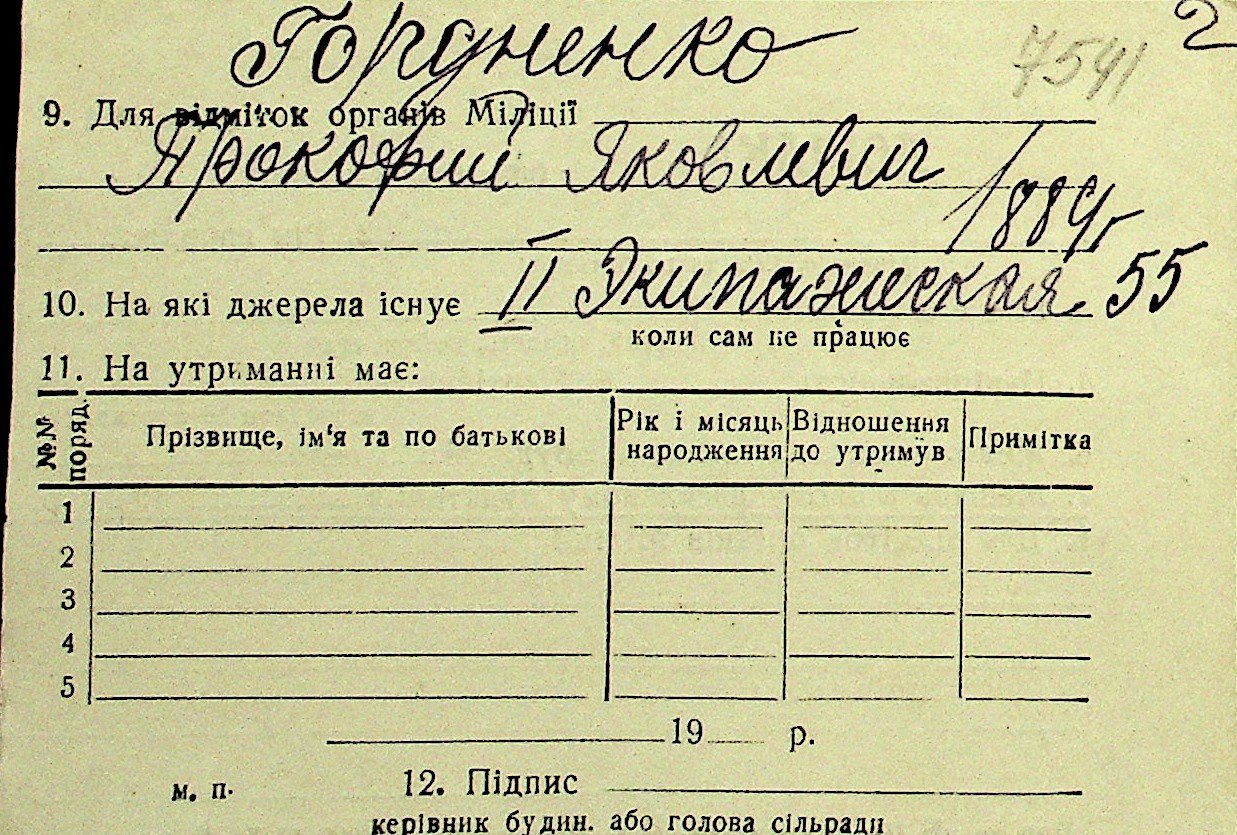 Гордиенко
7541
2
9. Для відміток органів Міліції
Прокофий Яковлевич
1889г
10. На які джерела існує II Экипажеская 55
коли сам не працює
11. На утриманні має:
№№ поряд.
Прізвище, ім'я та по батькові
Рік і місяць народження
Відношення до утримув
Примітка
1
2
3
4
5
19 р.
м. п.
12. Підпис
керівник будин. або голова сільради